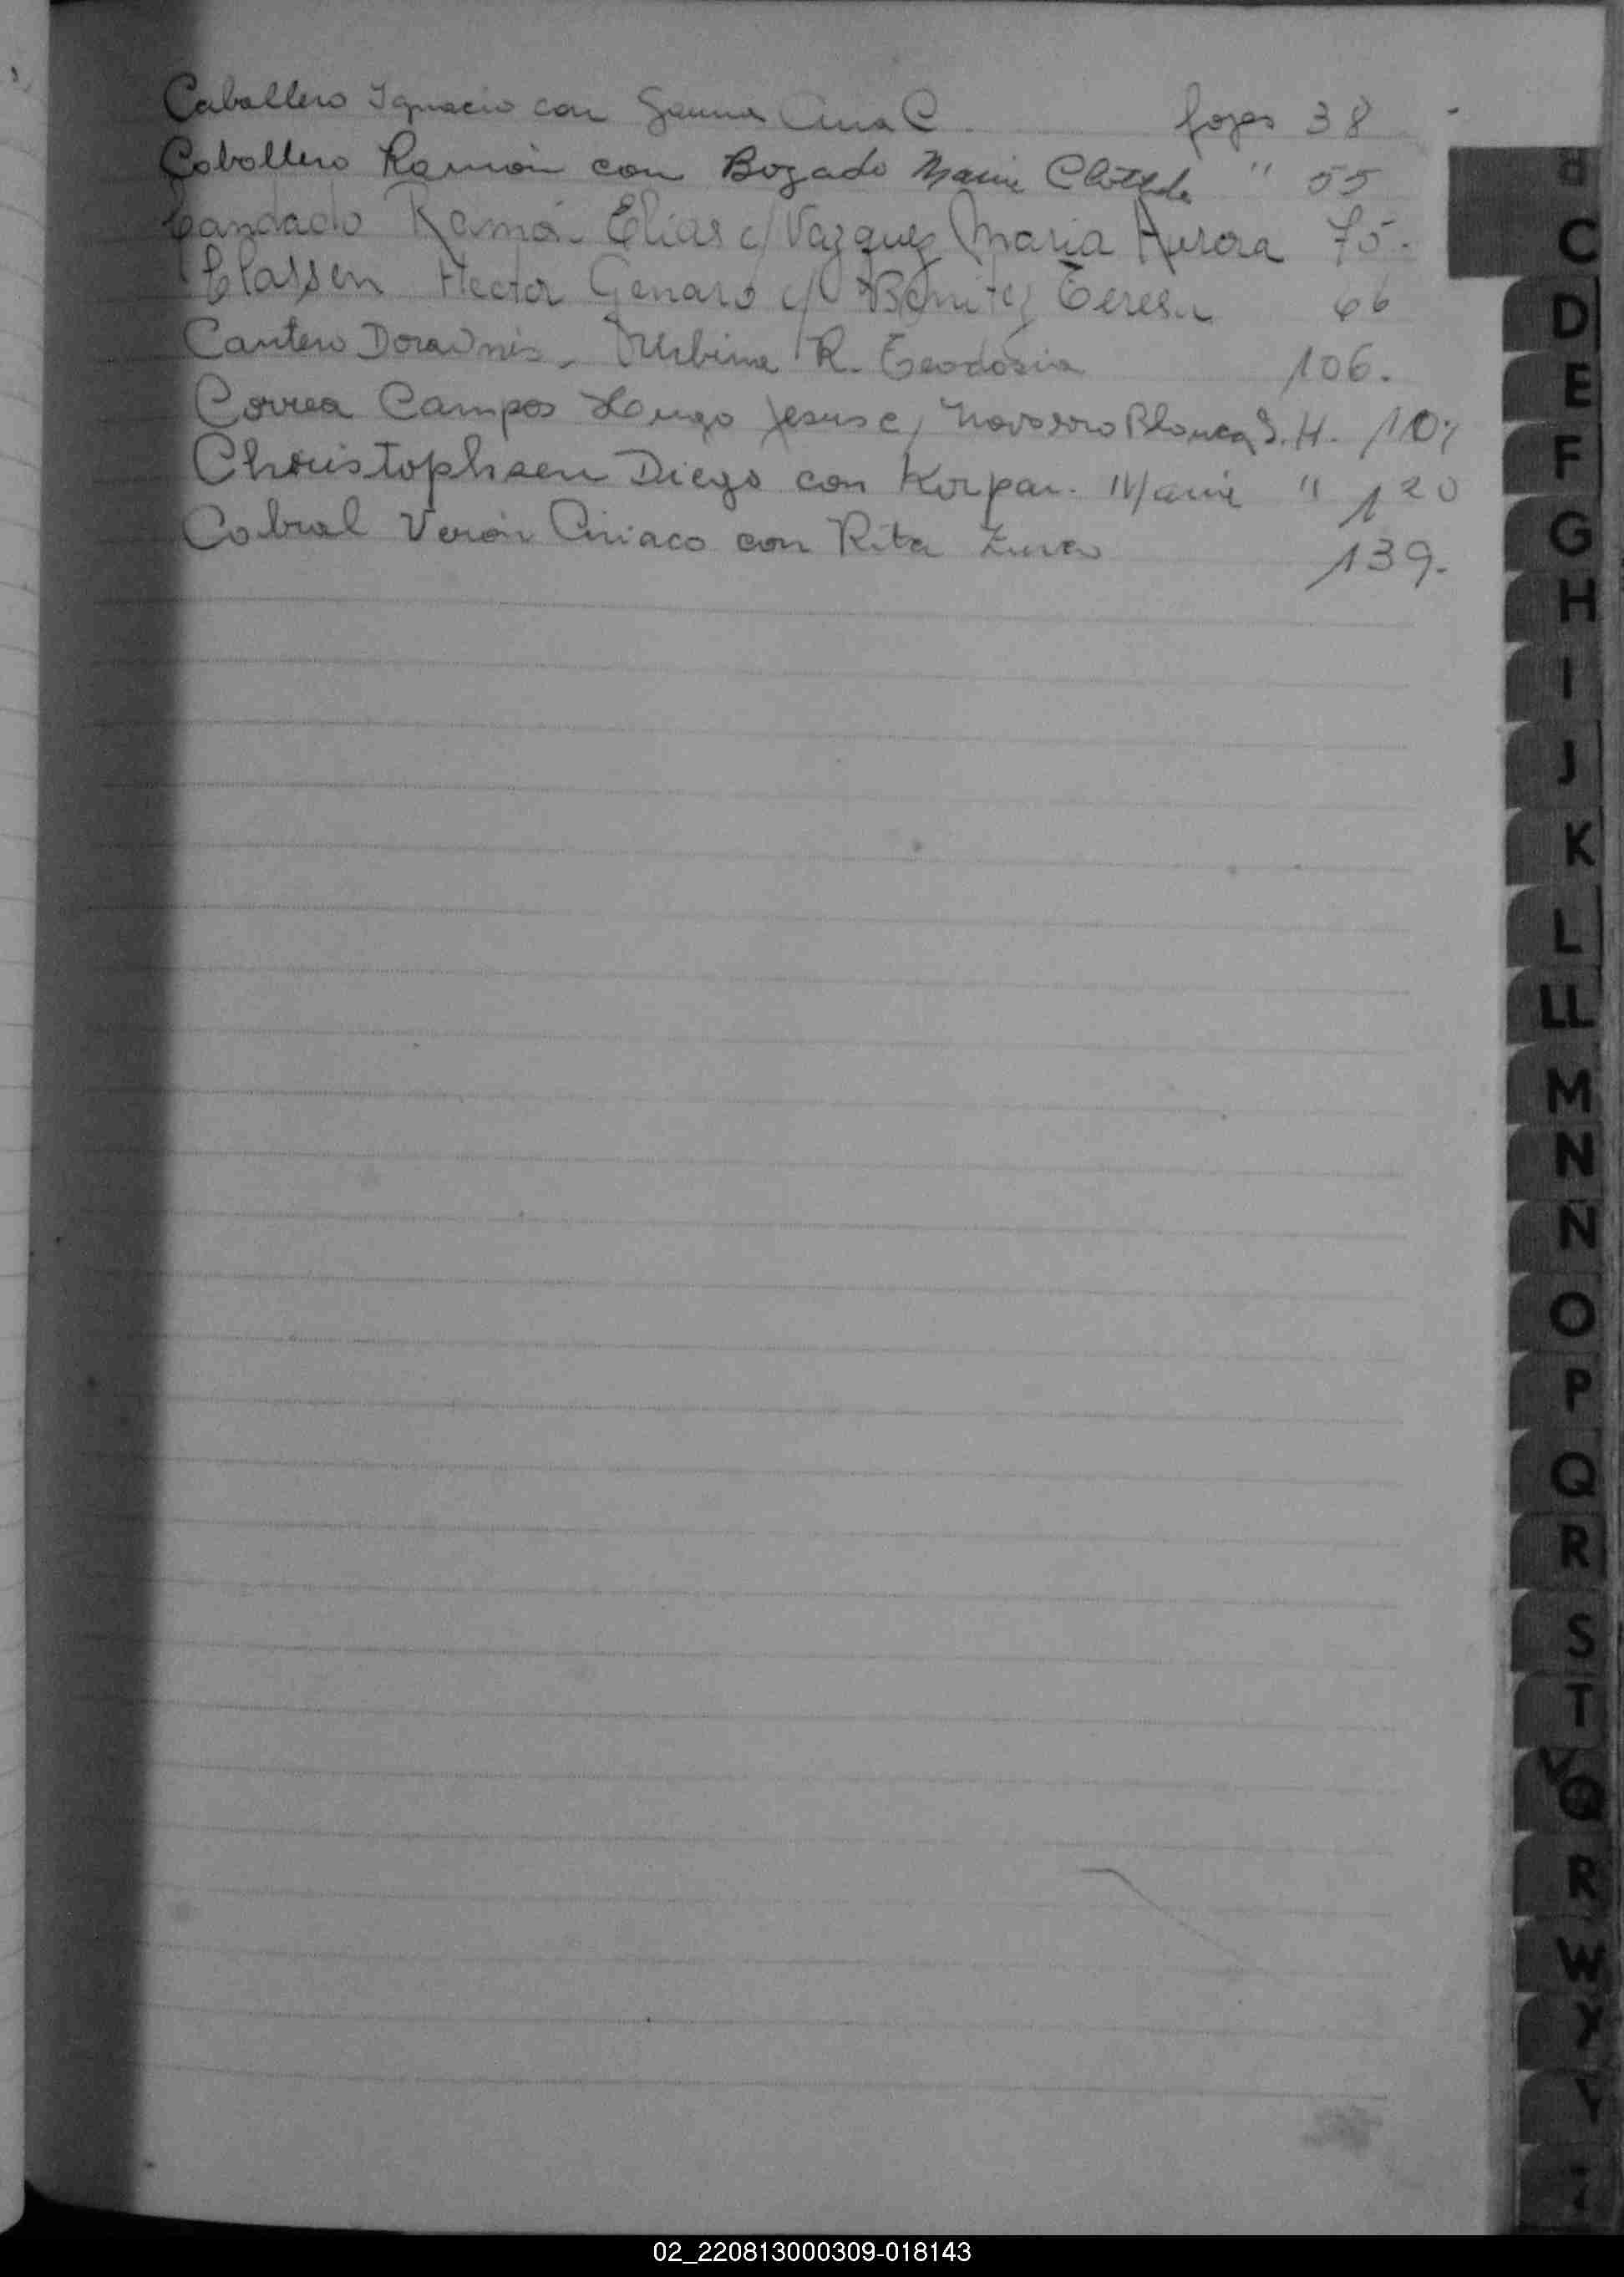 Caballero Ignacio con Gauna Ana C. fojas 38
Caballero Ramón con Bogado Maria Clotilde " 55
Candado Ramón Elias c/ Vazquez Maria Aurora 75.
Classen Hector Genaro c/ Benitez Teresa 66
Cantero R. Teodosia 106.
Correa Campos Hugo Jesus c/ Navarro Blanca S. H. 107
Christophsen Diego con Korpan Maria " 120
Cabral Verón Ciriaco con Rita 139.
B
C
D
E
F
G
H
I
J
K
L
LL
M
N
N
O
P
Q
R
S
T
V
Q
R
W
Y
Y
Z
02_220813000309-018143